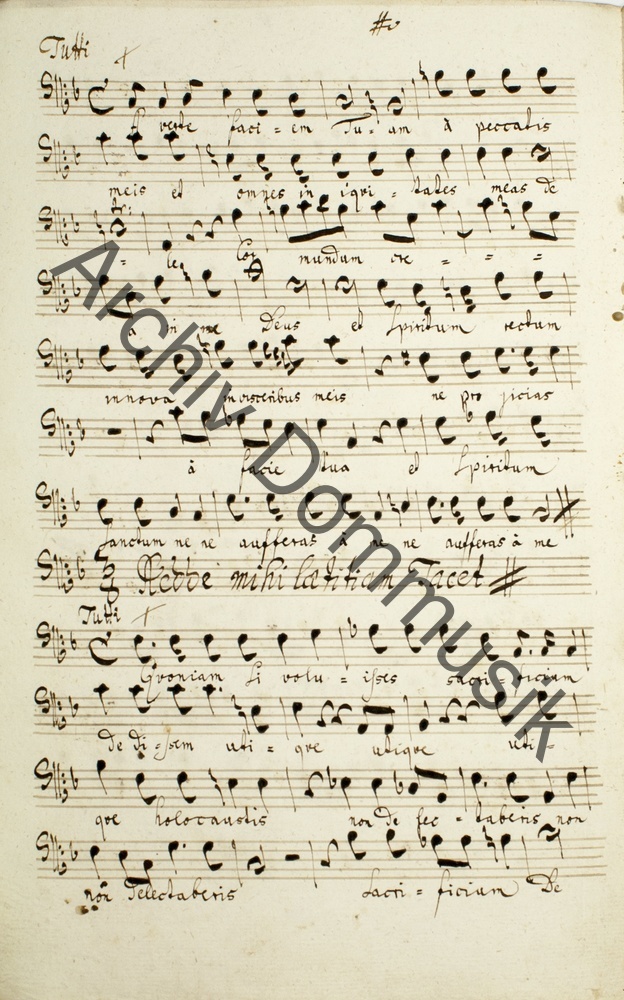 Tutti
Averte faci = em Tu = am à peccatis
meis et omnes in iqui = tates meas de
= le Cor mundum cre = = =
a in me Deus et Spiritum rectum
innova in visceribus meis ne pro jicias
à facie tua et Spiritum
Sanctum ne ne aufferas à me ne aufferas à me
Redde mihi lætitiam Tacet
Tutti
Quoniam si volu = isses sacri ficium
de di = ssem uti = que utique uti =
que holocaustis non de lec = taberis non
non delectaberis Sacri = ficium De
Archiv Dommusik